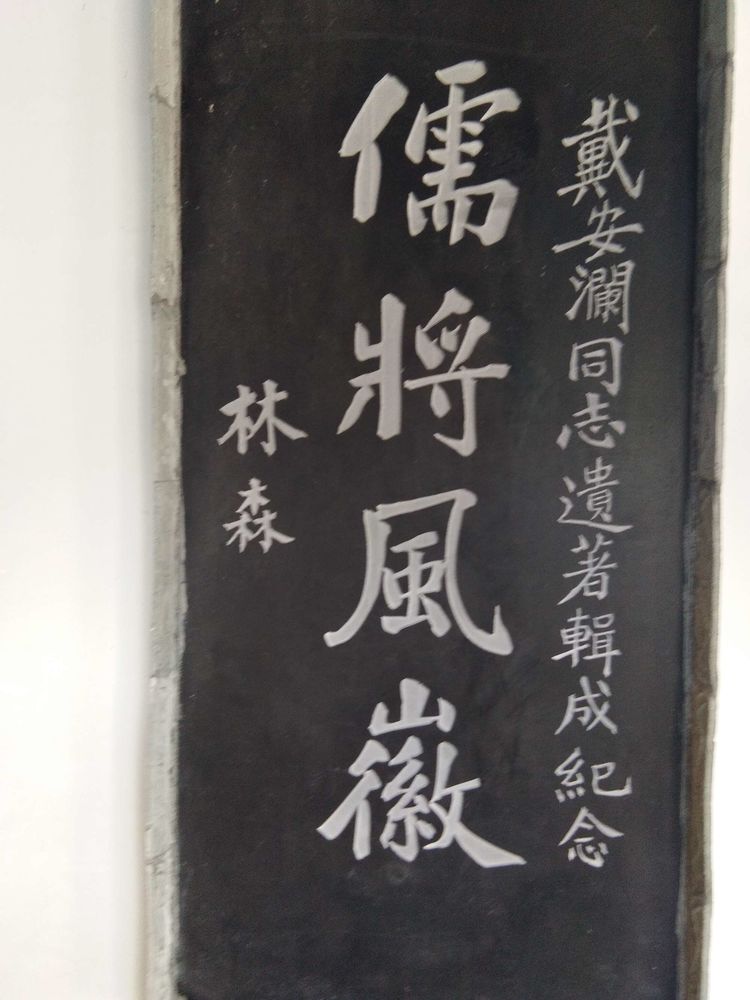 戴安瀾同志遺著輯成紀念
儒將風徽
林森